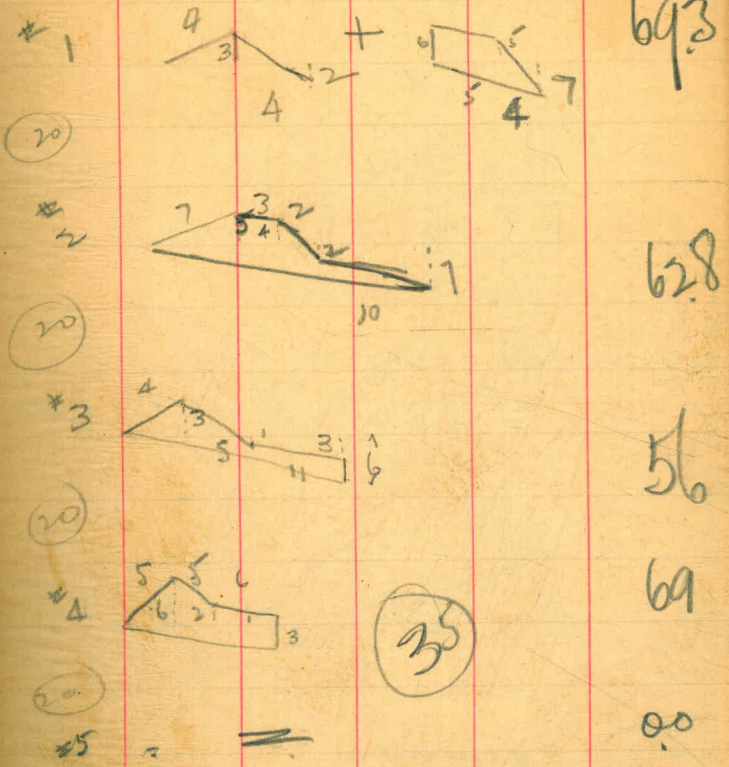 #1 4 3 4 2 + 6 5 5 4 7 69.3
20
#2 7 3 2 5 4 2 7 10 62.8
20
#3 4 3 5 1 3 11 6 56
20
#4 5 5 6 6 2 1 3 35 69
20
#5 = 0.0